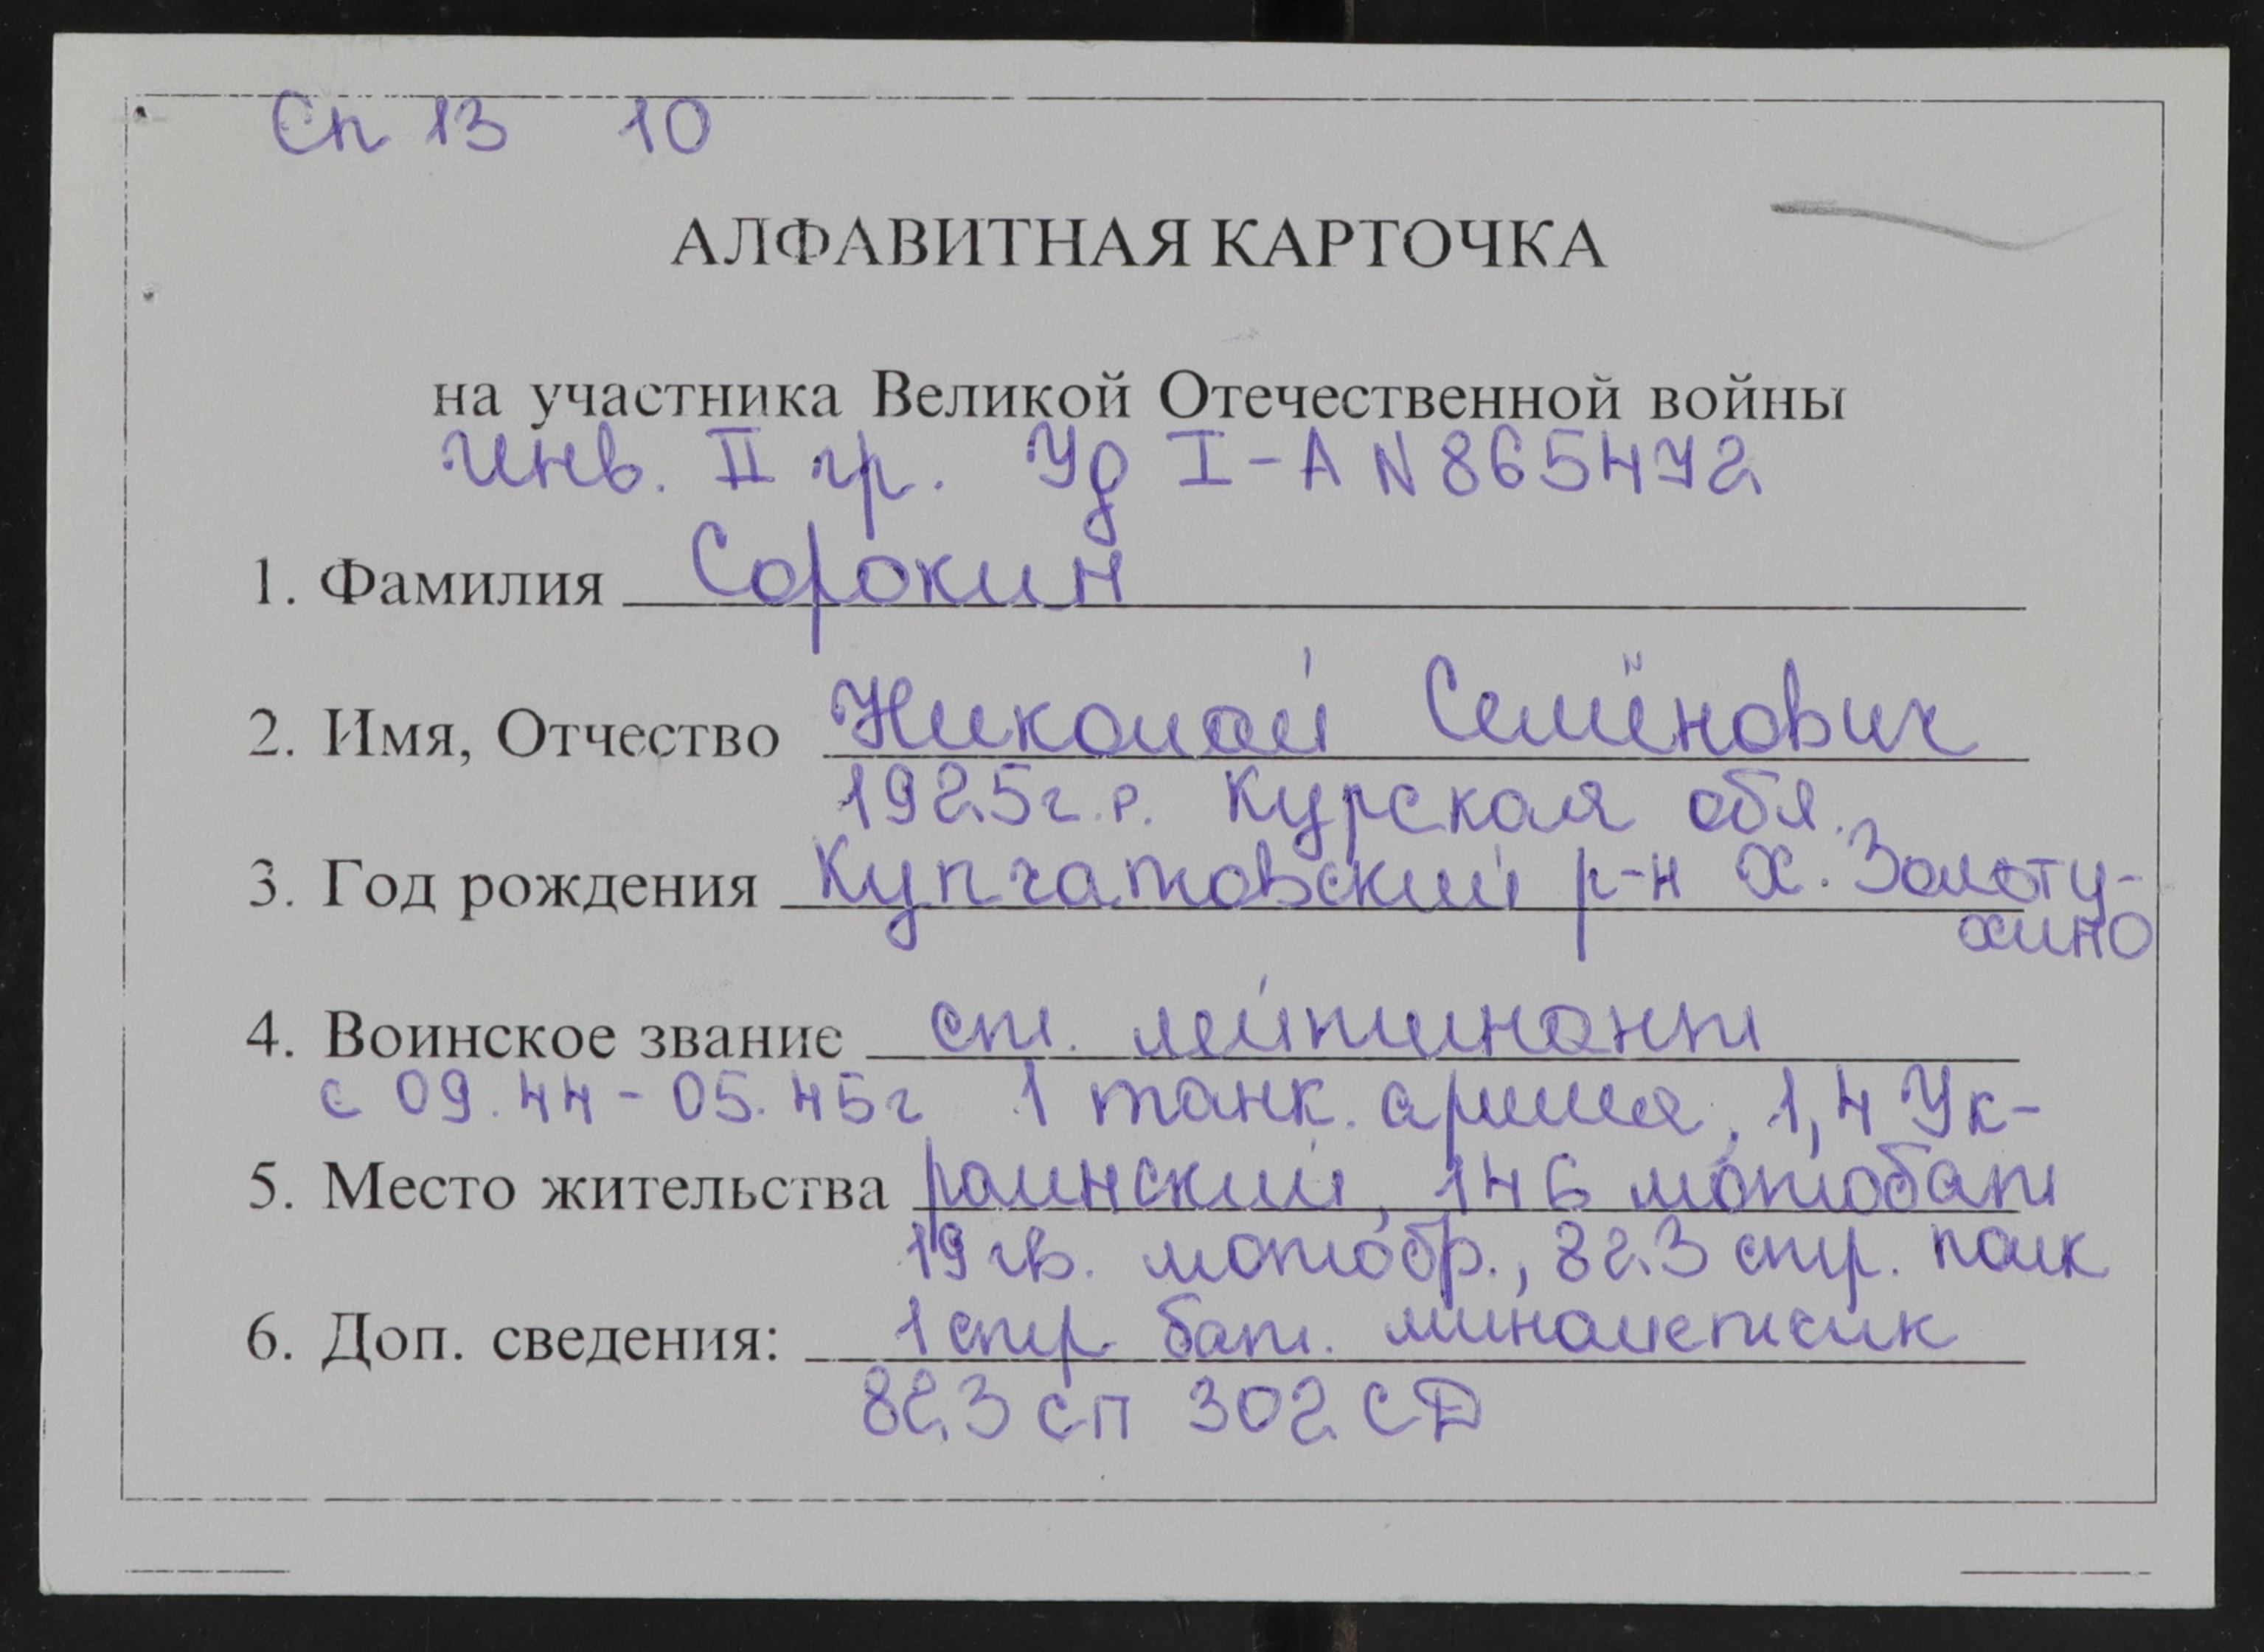 Сп 13 10
АЛФАВИТНАЯ КАРТОЧКА
на участника Великой Отечественной войны
Инв. II гр. Уд I-А N 865472
1. Фамилия Сорокин
2. Имя, Отчество Николай Семёнович
1925г.р. Курская обл.
3. Год рождения Купчатовский р-н х. Золоту-
хино
4. Воинское звание ст. лейтинант
с 09.44 - 05.45г 1 танк. армия, 1,4 Ук-
5. Место жительства раинский, 146 мотобат
19 гв. мотобр., 823 стр. полк
6. Доп. сведения: 1 стр бат. минометсик
823 сп 302 СД